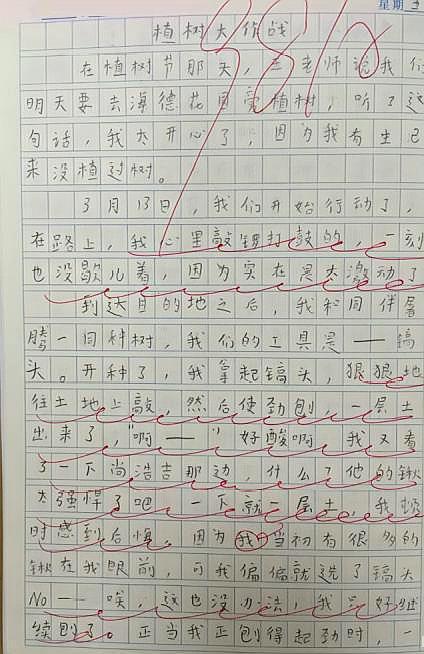 星期
植树大作战
在植树节那天,王老师说我们
明天要去海德花园去植树,听了这
句话,我太开心了,因为我有生已
来没植过树。
3月13日,我们开始行动了,
在路上,我心里敲锣打鼓的,一刻
也没歇儿着,因为实在是太激动了
到达目的地之后,我和同伴
腾一同种树,我们的工具是——镐
头。开种了,我拿起镐头,狠狠地
往土地上敲,然后使劲刨,一层土
出来了,"啊——"好酸啊,我又看
了一下尚浩吉那边,什么?他的锹
太强悍了吧,一下就一层土,我顿
时感到后悔,因为我当初有很多的
锹在我眼前,可我偏偏就选了镐头
No——唉,这也没办法,我只好继
续刨了。正当我正刨得起劲时,一